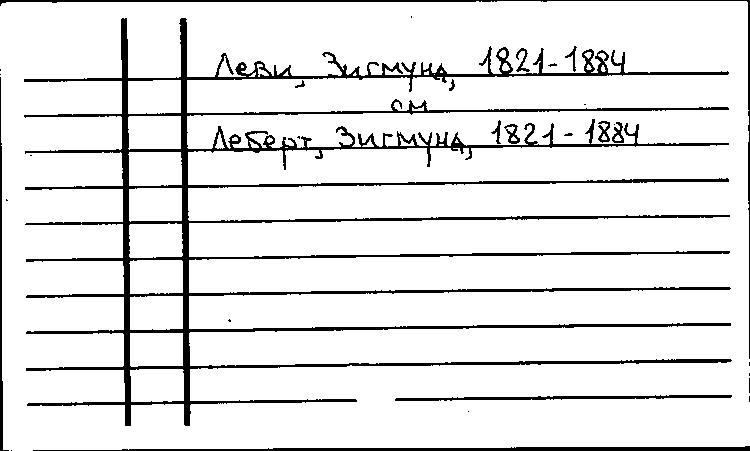 Леви, Зигмунд, 1821-1884
см
Леберт, Зигмунд, 1821-1884